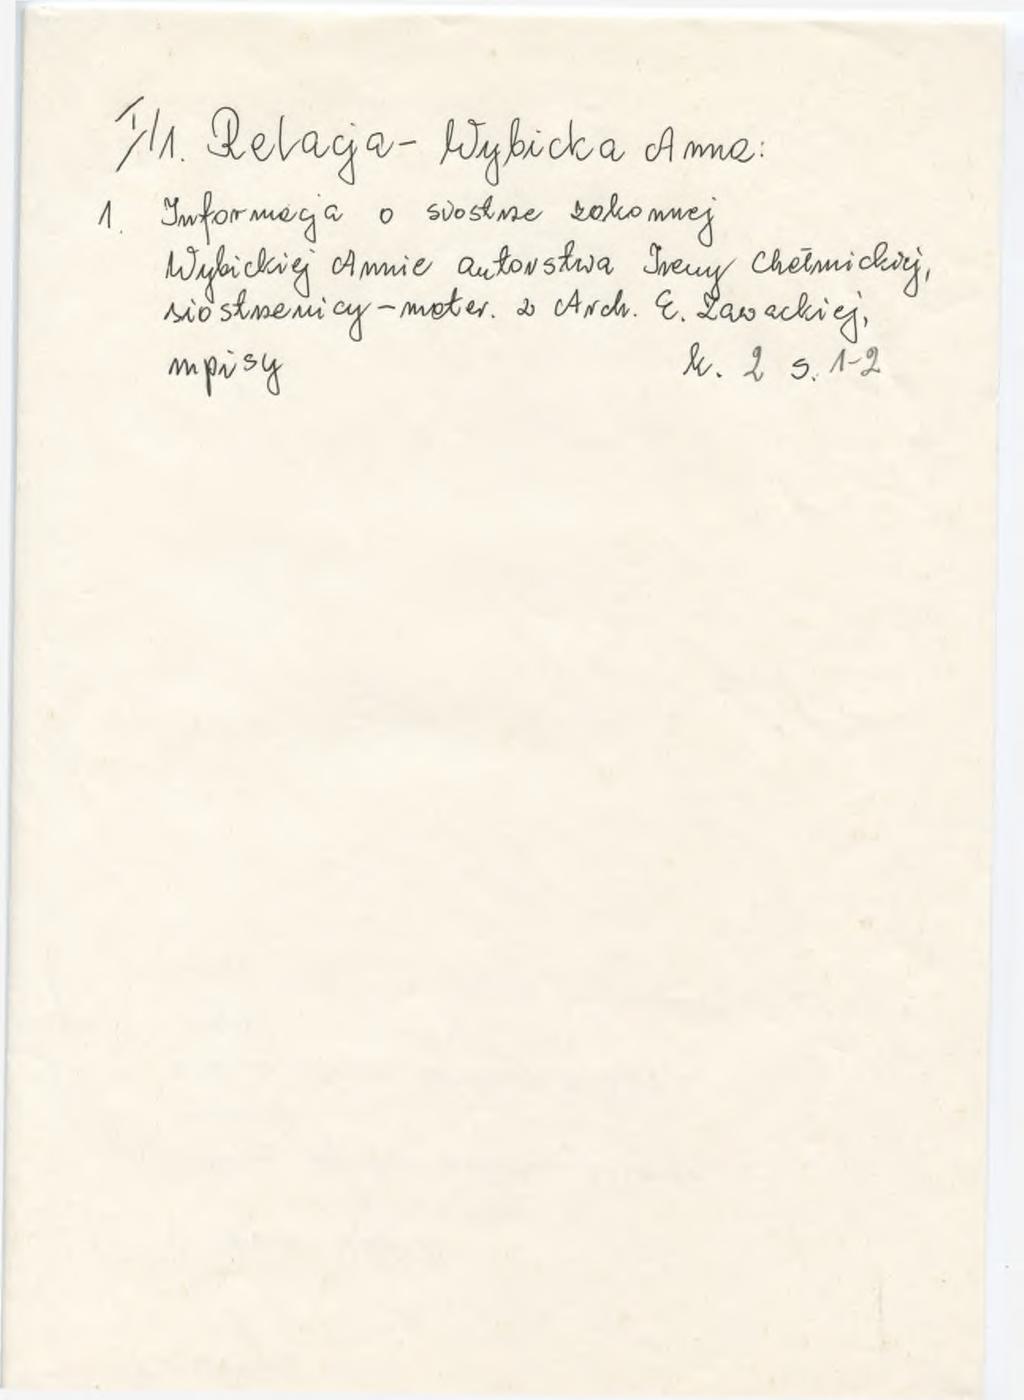 I/1. Relacja - Wybicka Anna:
1. Informacja o siostrze zakonnej
Wybickiej Annie autorstwa Ireny Chełmickiej,
siostrzenicy - mater. z Arch. E. Zawackiej,
mpisy k. 2 s. 1-2